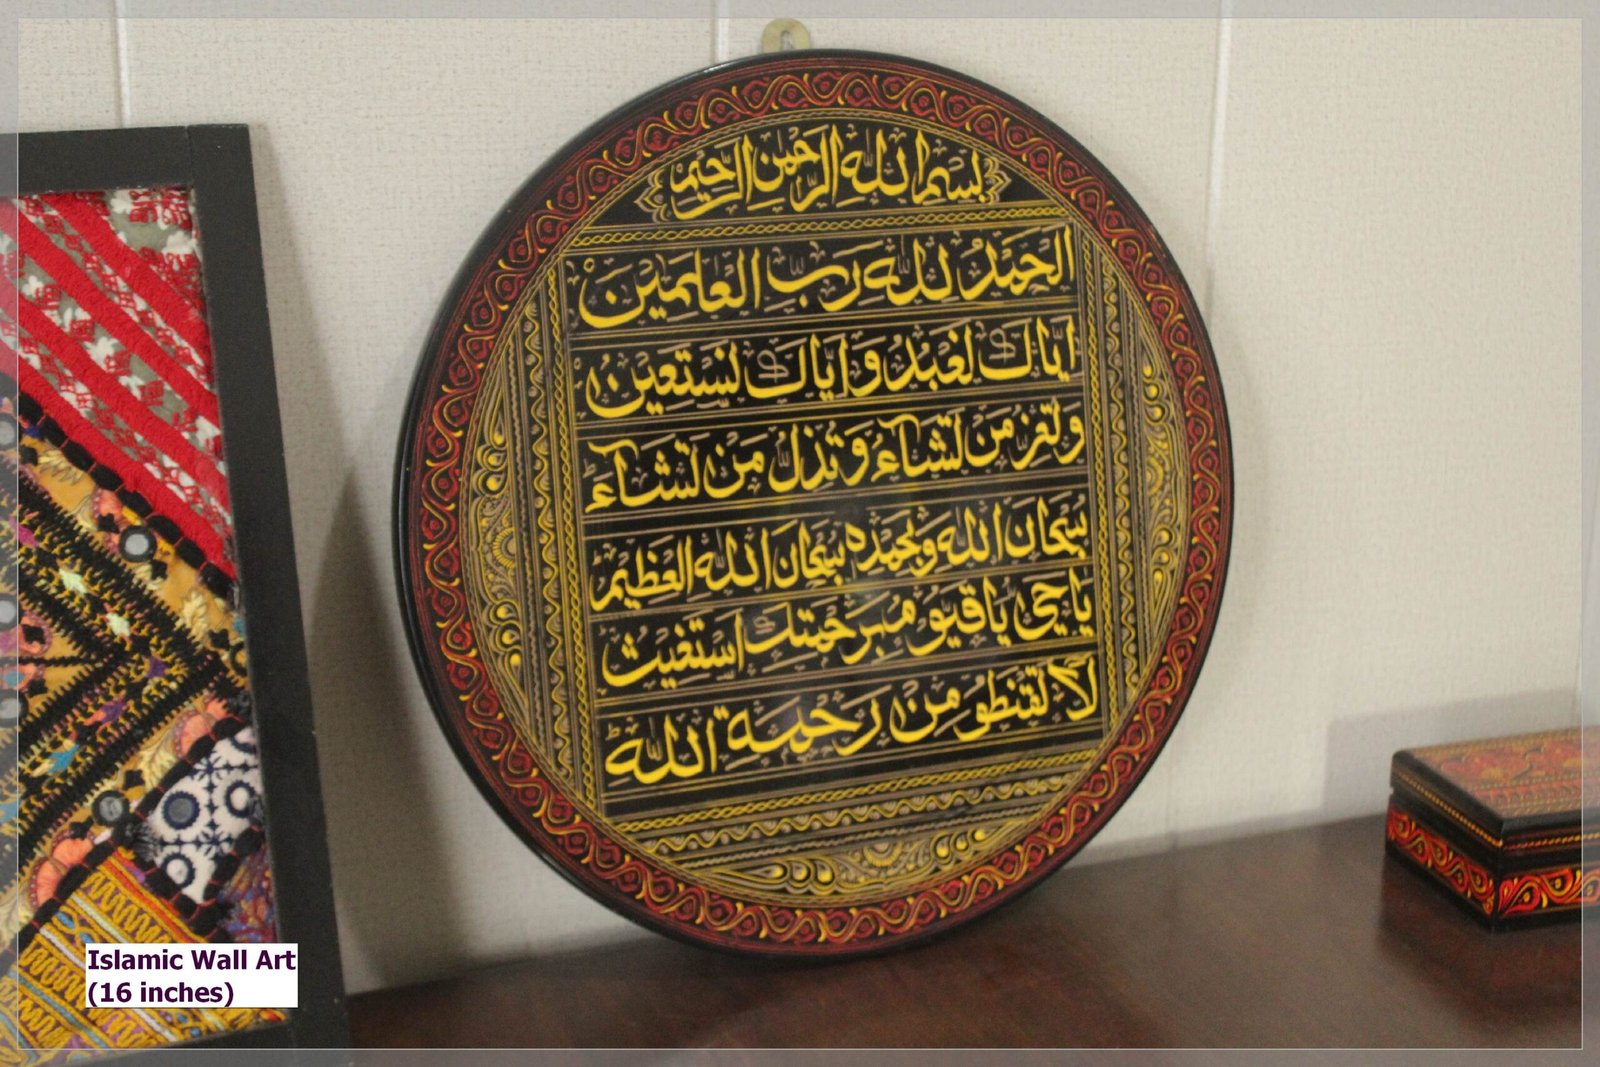 بِسْمِ اللهِ الرَّحْمٰنِ الرَّحِيْمِ
اَلْحَمْدُ لِلّٰهِ رَبِّ الْعٰلَمِيْنَ
اِيَّاكَ نَعْبُدُ وَاِيَّاكَ نَسْتَعِيْنُ
وَتُعِزُّ مَنْ تَشَآءُ وَتُذِلُّ مَنْ تَشَآءُ
سبحان الله وبحمده سبحان الله العظيم
ياحي ياقيوم برحمتك استغيث
لا تقنطو من رحمة الله
Islamic Wall Art
(16 inches)